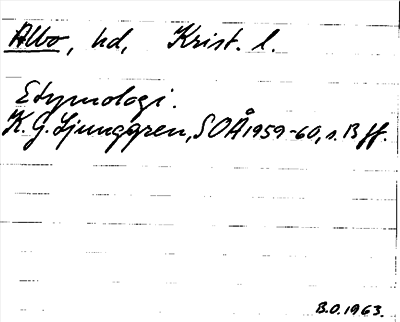 Albo, hd, Krist. l.
Etymologi.
K. G. Ljunggren, SOÅ 1959-60, s. 13 ff.
B.O. 1963.